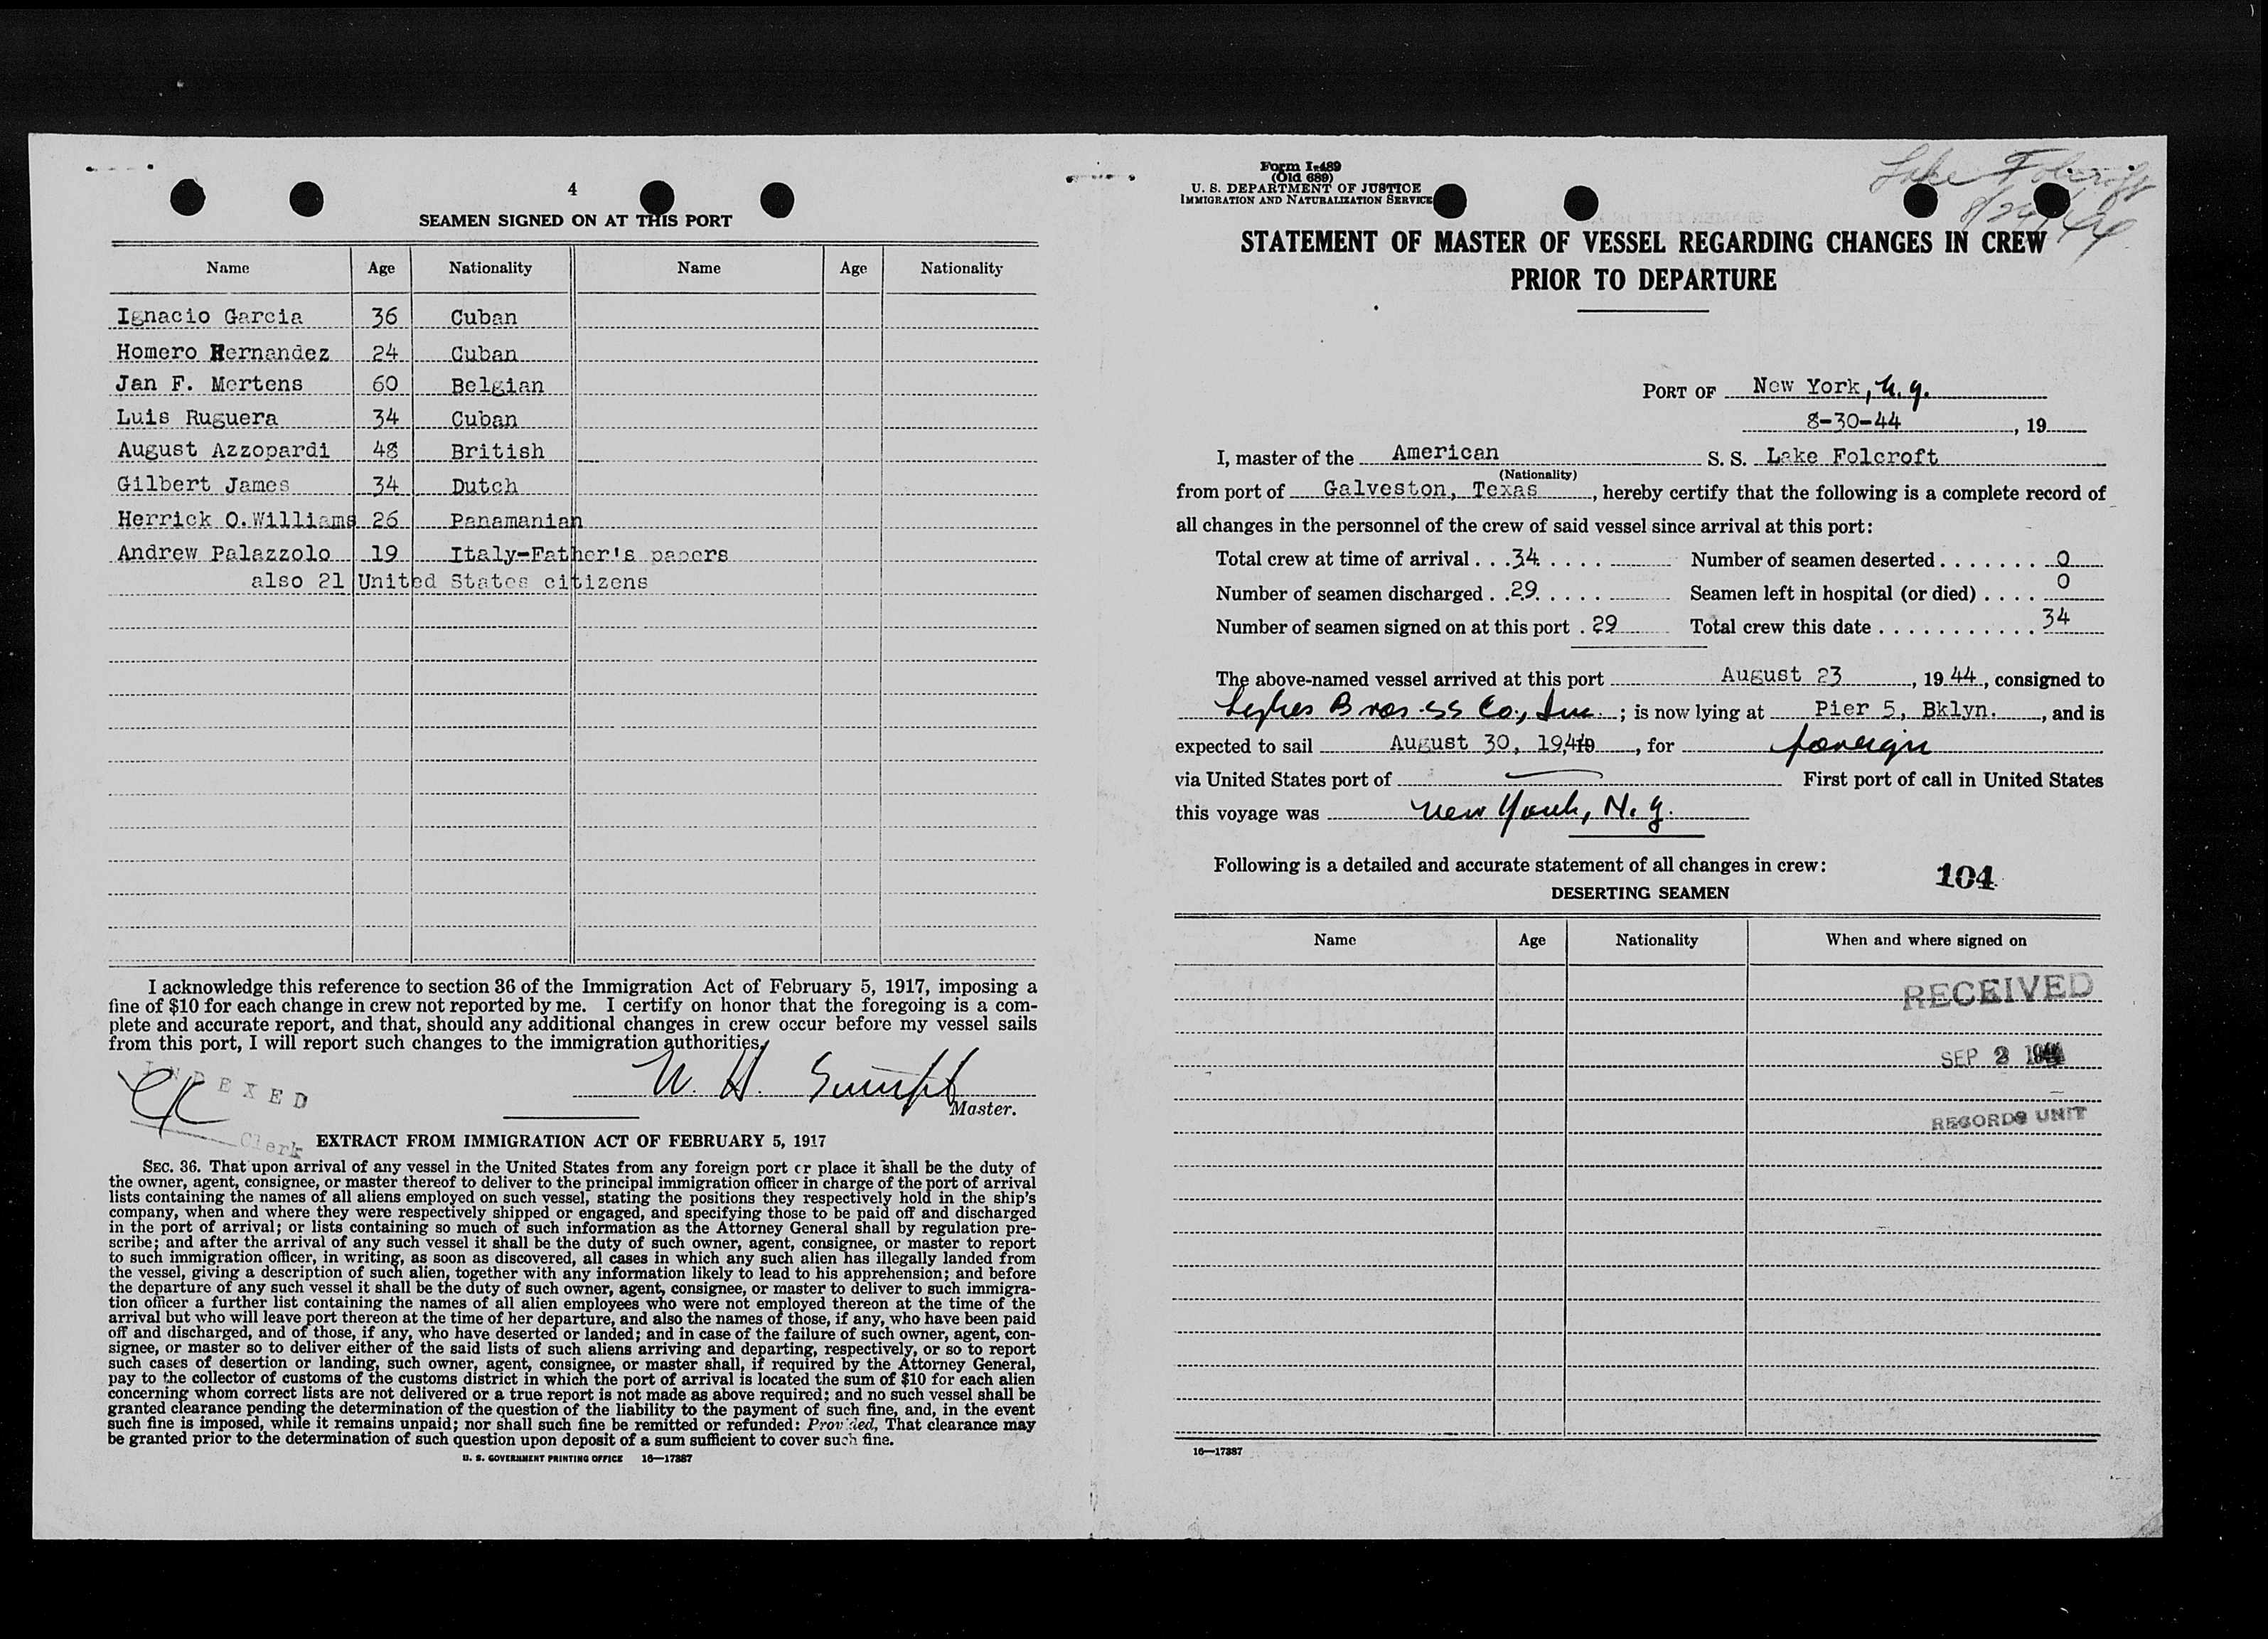 4
SEAMEN SIGNED ON AT THIS PORT
Name Age Nationality Name Age Nationality
Ignacio Garcia 36 Cuban
Homero Hernandez 24 Cuban
Jan F. Mertens 60 Belgian
Luis Ruguera 34 Cuban
August Azzopardi 48 British
Gilbert James 34 Dutch
Herrick O.Williams 26 Panamanian
Andrew Palazzolo 19 Italy-Father's papers
also 21 United States citizens
I acknowledge this reference to section 36 of the Immigration Act of February 5, 1917, imposing a
fine of $10 for each change in crew not reported by me. I certify on honor that the foregoing is a com-
plete and accurate report, and that, should any additional changes in crew occur before my vessel sails
from this port, I will report such changes to the immigration authorities.
INDEXED
W. H.
Master.
Clerk
EXTRACT FROM IMMIGRATION ACT OF FEBRUARY 5, 1917
SEC. 36. That upon arrival of any vessel in the United States from any foreign port or place it shall be the duty of
the owner, agent, consignee, or master thereof to deliver to the principal immigration officer in charge of the port of arrival
lists containing the names of all aliens employed on such vessel, stating the positions they respectively hold in the ship's
company, when and where they were respectively shipped or engaged, and specifying those to be paid off and discharged
in the port of arrival; or lists containing so much of such information as the Attorney General shall by regulation pre-
scribe; and after the arrival of any such vessel it shall be the duty of such owner, agent, consignee, or master to report
to such immigration officer, in writing, as soon as discovered, all cases in which any such alien has illegally landed from
the vessel, giving a description of such alien, together with any information likely to lead to his apprehension; and before
the departure of any such vessel it shall be the duty of such owner, agent, consignee, or master to deliver to such immigra-
tion officer a further list containing the names of all alien employees who were not employed thereon at the time of the
arrival but who will leave port thereon at the time of her departure, and also the names of those, if any, who have been paid
off and discharged, and of those, if any, who have deserted or landed; and in case of the failure of such owner, agent, con-
signee, or master so to deliver either of the said lists of such aliens arriving and departing, respectively, or so to report
such cases of desertion or landing, such owner, agent, consignee, or master shall, if required by the Attorney General,
pay to the collector of customs of the customs district in which the port of arrival is located the sum of $10 for each alien
concerning whom correct lists are not delivered or a true report is not made as above required; and no such vessel shall be
granted clearance pending the determination of the question of the liability to the payment of such fine, and, in the event
such fine is imposed, while it remains unpaid; nor shall such fine be remitted or refunded: Provided, That clearance may
be granted prior to the determination of such question upon deposit of a sum sufficient to cover such fine.
U. S. GOVERNMENT PRINTING OFFICE 16—17387
Form I-489
(Old 689)
U. S. DEPARTMENT OF JUSTICE
IMMIGRATION AND NATURALIZATION SERVICE
Lake Folcroft
STATEMENT OF MASTER OF VESSEL REGARDING CHANGES IN CREW
PRIOR TO DEPARTURE
PORT OF New York, N.Y.
8-30-44, 19
I, master of the American S. S. Lake Folcroft
(Nationality)
from port of Galveston, Texas, hereby certify that the following is a complete record of
all changes in the personnel of the crew of said vessel since arrival at this port:
Total crew at time of arrival . . . 34 . . . . Number of seamen deserted . . . . . . . 0
Number of seamen discharged . . 29 . . . . . Seamen left in hospital (or died) . . . . 0
Number of seamen signed on at this port . 29 Total crew this date . . . . . . . . . . . 34
The above-named vessel arrived at this port August 23, 1944, consigned to
Lykes Bros SS Co., Inc. ; is now lying at Pier 5, Bklyn., and is
expected to sail August 30, 1944, for foreign
via United States port of — First port of call in United States
this voyage was New York, N.Y.
Following is a detailed and accurate statement of all changes in crew:
104
DESERTING SEAMEN
Name Age Nationality When and where signed on
RECEIVED
SEP 2 1944
RECORDS UNIT
16—17387